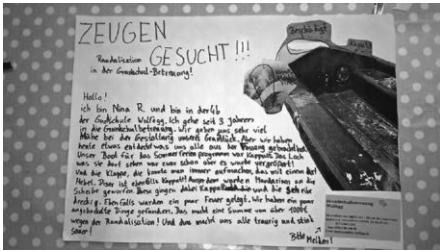 ZEUGEN
GESUCHT!!!
Randalisation
in der Grundschul-Betreuung!
Beschädigt
Kaputt
Hallo!
ich bin Nina R. und bin in der 4b
der Grundschule Wolfegg. Ich gehe seit 3 Jahren
in die Grundschulbetreuung. Wir geben uns sehr viel
Mühe bei der Gestaltung unseres Aber wir haben
heute etwas entdeckt was uns alle aus der Fassung gebracht hat.
Unser Boot für das Sommerferien programm war Kaputt. Das Loch
was sie dort sehen war zwar schon aber es wurde vergrößert!
Und die Klappe, die konnte man immer aufmachen, das mit einem
Hebel. Dieser ist ebenfalls Kaputt! Ausserdem wurden an die
Scheibe geworfen. Diese gingen dabei Kaputt und die
dreckig. Ebenfalls wurden ein paar Feuer gelegt. Wir haben ein paar
angekokelte Dinge gefunden. Das macht eine Summe von über 1000€
wegen der Randalisation! Und das macht uns alle traurig und
sauer!
Bitte
Melken!